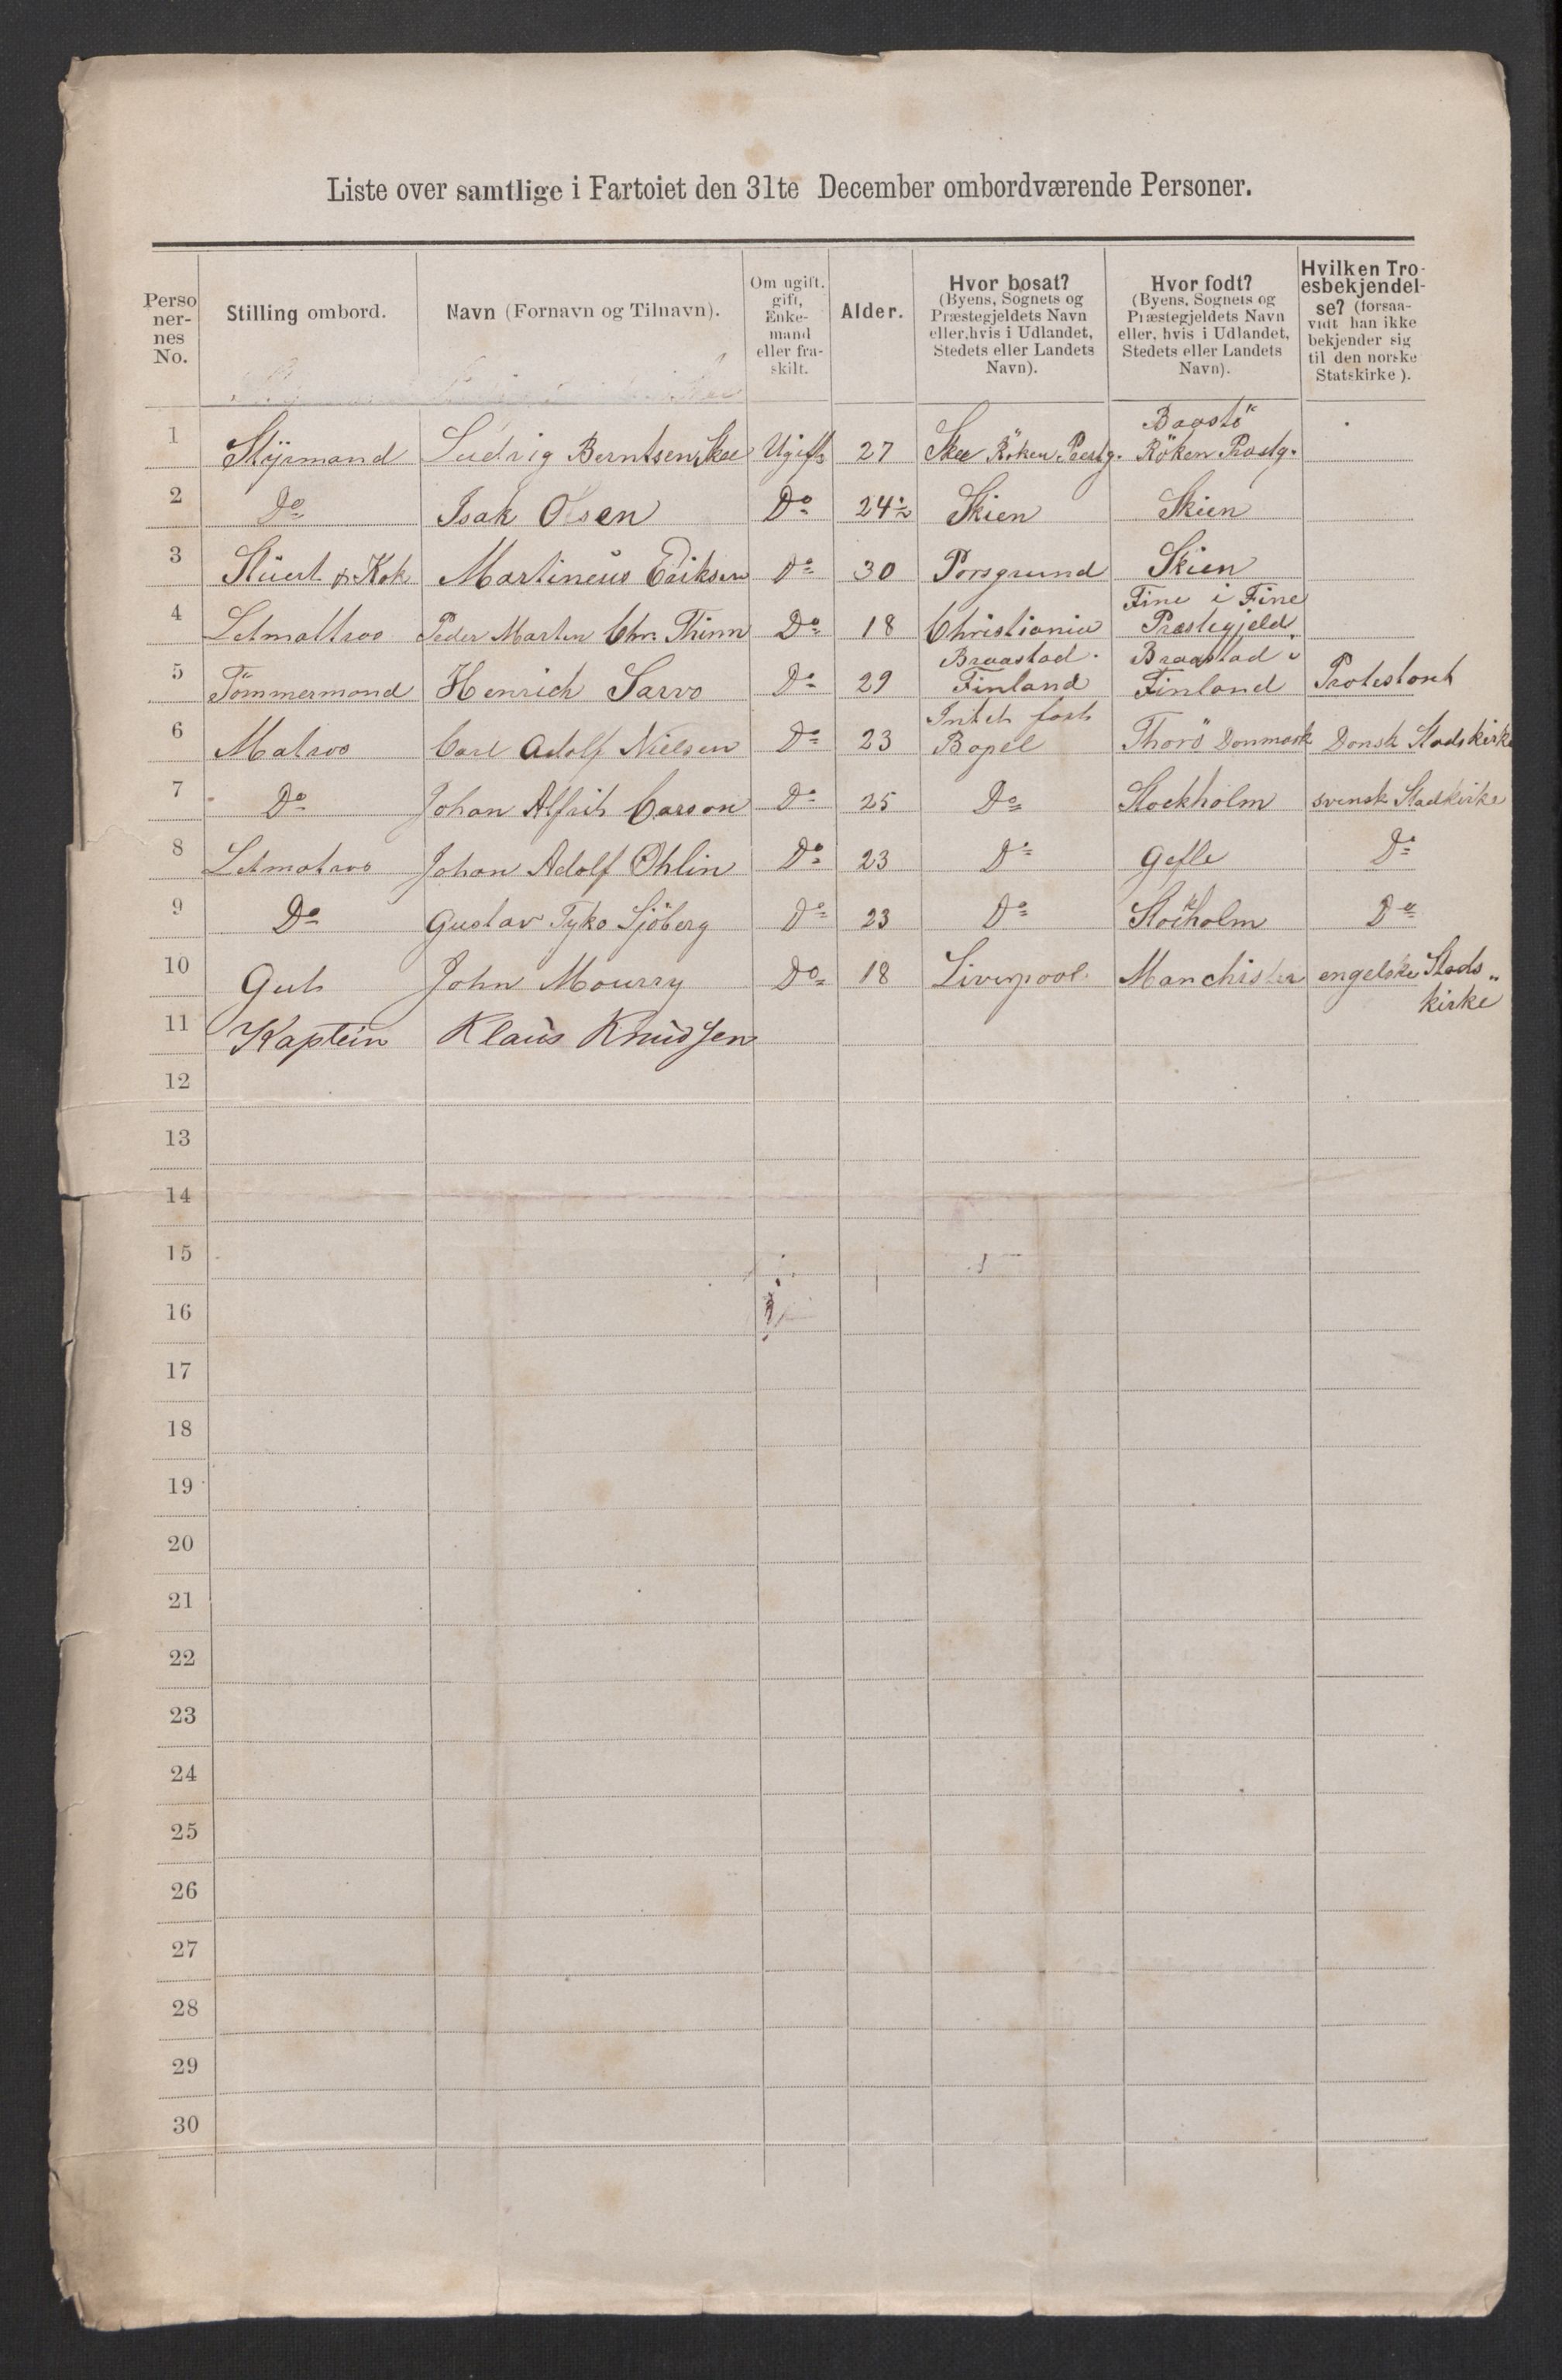 Liste over samtlige i Fartoiet den 31te December ombordværende Personer.
Perso
ner-
nes
No.
Stilling ombord.
Navn (Fornavn og Tilnavn).
Om ugift.
gift,
Enke-
mand
eller fra-
skilt.
Alder.
Hvor bosat?
(Byens, Sognets og
Præstegjeldets Navn
eller, hvis i Udlandet,
Stedets eller Landets
Navn).
Hvor fodt?
(Byens, Sognets og
Præstegjeldets Navn
eller, hvis i Udlandet,
Stedets eller Landets
Navn).
Hvilken Tro-
esbekjendel-
se? (forsaa-
vidt han ikke
bekjender sig
til den norske
Statskirke).
Baastö
1 Styrmand Ludvig Berntsen Skee Ugift 27 Skee Röken Præstg. Röken Præstg.
2 Do Isak Olsen Do 24½ Skien Skien
3 Stuert & Kok Martineus Eriksen Do 30 Porsgrund Skien
Fine i Fine
4 Letmattros Peder Marten Chr. Thinn Do 18 Christiania Præstegjeld.
Braastad. Braastad i
5 Tömmermand Henrich Sarvo Do 29 Finland Finland Protestant
Intet fast
6 Matros Carl Adolf Nielsen Do 23 Bopel Thorö Danmark Dansk Stadskirke
7 Do Johan Alfrit Carson Do 25 Do Stockholm svensk Stadkirke
8 Letmatros Johan Adolf Öhlin Do 23 Do Gefle Do
9 Do Gustav Tyko Sjöberg Do 23 Do Stockholm Do
10 Gut John Mourry Do 18 Liverpool Manchister engelske Stads„
kirke
11 Kaptein Klaus Knudsen
12
13
14
15
16
17
18
19
20
21
22
23
24
25
26
27
28
29
30